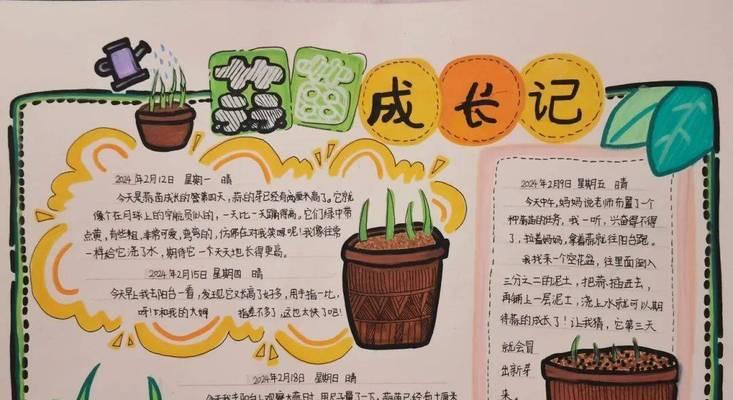 蒜苗成长记
2024年2月12日 星期一 晴
今天是蒜苗成长的第四天,蒜的芽已经有两厘米高了。它就
像个在月球上的宇航员似的,一天比一天蹦得高。它们绿中带
点黄,有些粗,非常可爱,弯弯的,仿佛在对我笑呢!我像往常
一样给它浇了水,期待它一个天天地长得更高。
2024年2月15日 星期四 晴
今天早上我去阳台一看,发现它又长高了好多,用手指一比,
呀!和我的大拇 指差不多了,这也太快了吧!
2024年2月18日 星期日 晴
2024年2月9日 星期五 晴
今天中午,妈妈说老师布置了一个
种蒜苗的任务,我一听,兴奋得不得
了,拉着妈妈,拿着蒜就往阳台跑。
我找来一个空花盆,往里面倒入
三分之二的泥土,把蒜插进去,
再铺上一层泥土,浇上水就可以期
待蒜的成长了!让我猜,它第三天
就会冒
出新芽
来。